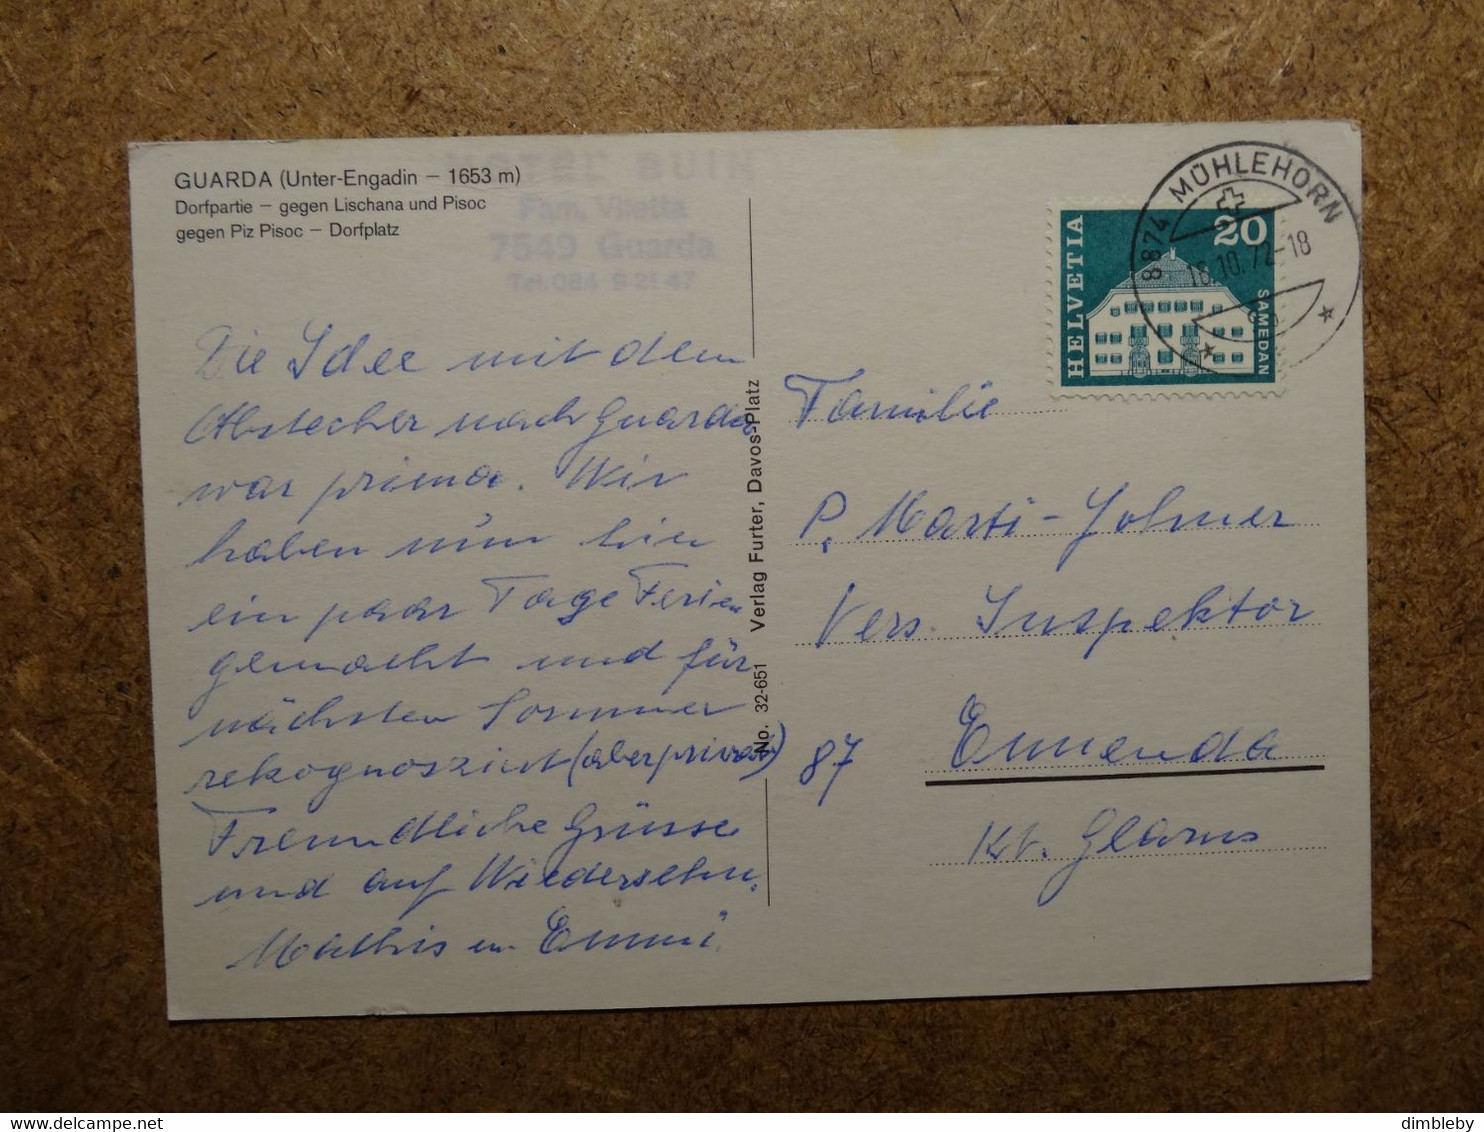 GUARDA (Unter-Engadin – 1653 m)
Dorfpartie – gegen Lischana und Pisoc
gegen Piz Pisoc – Dorfplatz
HOTEL BUIN
Fam. Viletta
7549 Guarda
Tel. 084 9 21 47
Die Idee mit dem
Abstecher nach Guarda
war prima. Wir
haben nun hier
ein paar Tage Ferien
gemacht und für
nächsten Sommer
rekognosziert (aber privat)
Freundliche Grüsse
und auf Wiedersehn.
Mathis u Emmi
No. 32-651 Verlag Furter, Davos-Platz
HELVETIA
20
SAMEDAN
8874 MÜHLEHORN
16.10.72-18
Familie
P. Marti-
Vers. Inspektor
87 Ennenda
Kt. Glarus
dimbleby